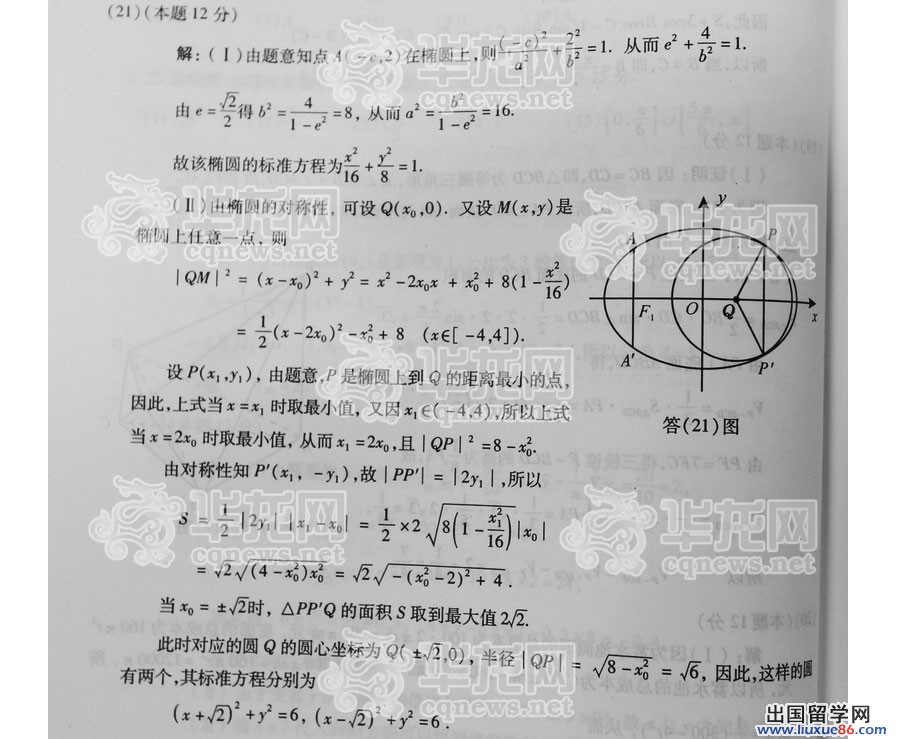 (21)(本题12分)
解:(Ⅰ)由题意知点A(-c,2)在椭圆上,则(-c)²/a²+2²/b²=1. 从而e²+4/b²=1.
由e=√2/2得b²=4/(1-e²)=8,从而a²=b²/(1-e²)=16.
故该椭圆的标准方程为x²/16+y²/8=1.
(Ⅱ)由椭圆的对称性,可设Q(x₀,0). 又设M(x,y)是
椭圆上任意一点,则
|QM|²=(x-x₀)²+y²=x²-2x₀x+x₀²+8(1-x²/16)
=1/2(x-2x₀)²-x₀²+8 (x∈[-4,4]).
设P(x₁,y₁),由题意,P是椭圆上到Q的距离最小的点,
因此,上式当x=x₁时取最小值,又因x₁∈(-4,4),所以上式
当x=2x₀时取最小值,从而x₁=2x₀,且|QP|²=8-x₀².
由对称性知P'(x₁,-y₁),故|PP'|=|2y₁|,所以
S=1/2|2y₁||x₁-x₀|=1/2×2√(8(1-x₁²/16))|x₀|
=√2√((4-x₀²)x₀²)=√2√(-(x₀²-2)²+4).
当x₀=±√2时,△PP'Q的面积S取到最大值2√2.
此时对应的圆Q的圆心坐标为Q(±√2,0),半径|QP|=√(8-x₀²)=√6,因此,这样的圆
有两个,其标准方程分别为
(x+√2)²+y²=6,(x-√2)²+y²=6.
y
A
P
F₁
O
Q
x
A'
P'
答(21)图
华龙网
cqnews.net
华龙网
cqnews.net
华龙网
cqnews.net
华龙网
cqnews.net
华龙网
cqnews.net
华龙网
cqnews.net
华龙网
cqnews.net
华龙网
cqnews.net
华龙网
cqnews.net
出国留学网
www.liuxue86.com